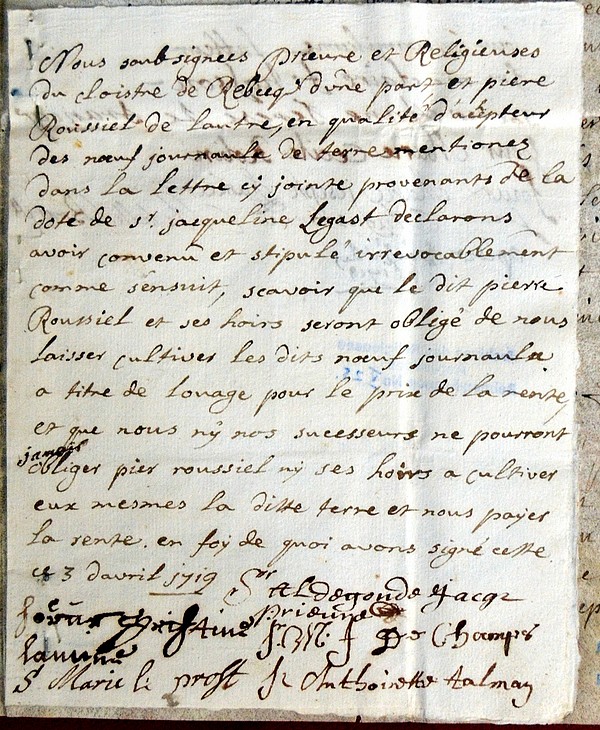 Nous soubsignees prieure et Religieuses
du cloistre de Rebecq d'une part et piere
Roussiel de lautre, en qualité d'acepteur
des nœuf journaule de terre mentionez
dans la lettre cy jointe provenants de la
dote de sr. jacqueline Legast declarons
avoir convenu et stipulé irrevocablement
comme sensuit, scavoir que le dit pierre
Roussiel et ses hoirs seront obligé de nous
laisser cultiver les dits nœuf journaule
a titre de louage pour le prix de la rente,
et que nous ny nos sucesseurs ne pourront
jamais
obliger pier roussiel ny ses hoirs a cultiver
eux mesmes la ditte terre et nous payer
la rente. en foy de quoi avons signé cette
ce 3 davril 1719 Sr Aldegonde Jacq
prieure
Christine Sr M: J De Champs
S Marie le prost Sr Anthoinette talman